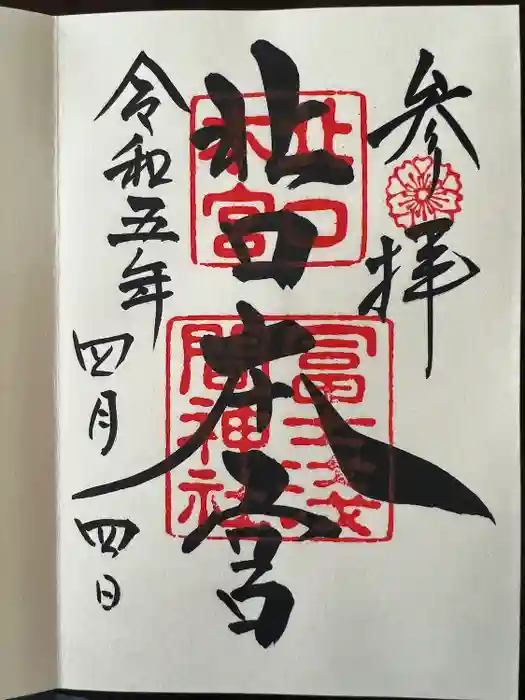 参拝
北口本宮
北口
本宮
冨士浅
間神社
令和五年四月四日